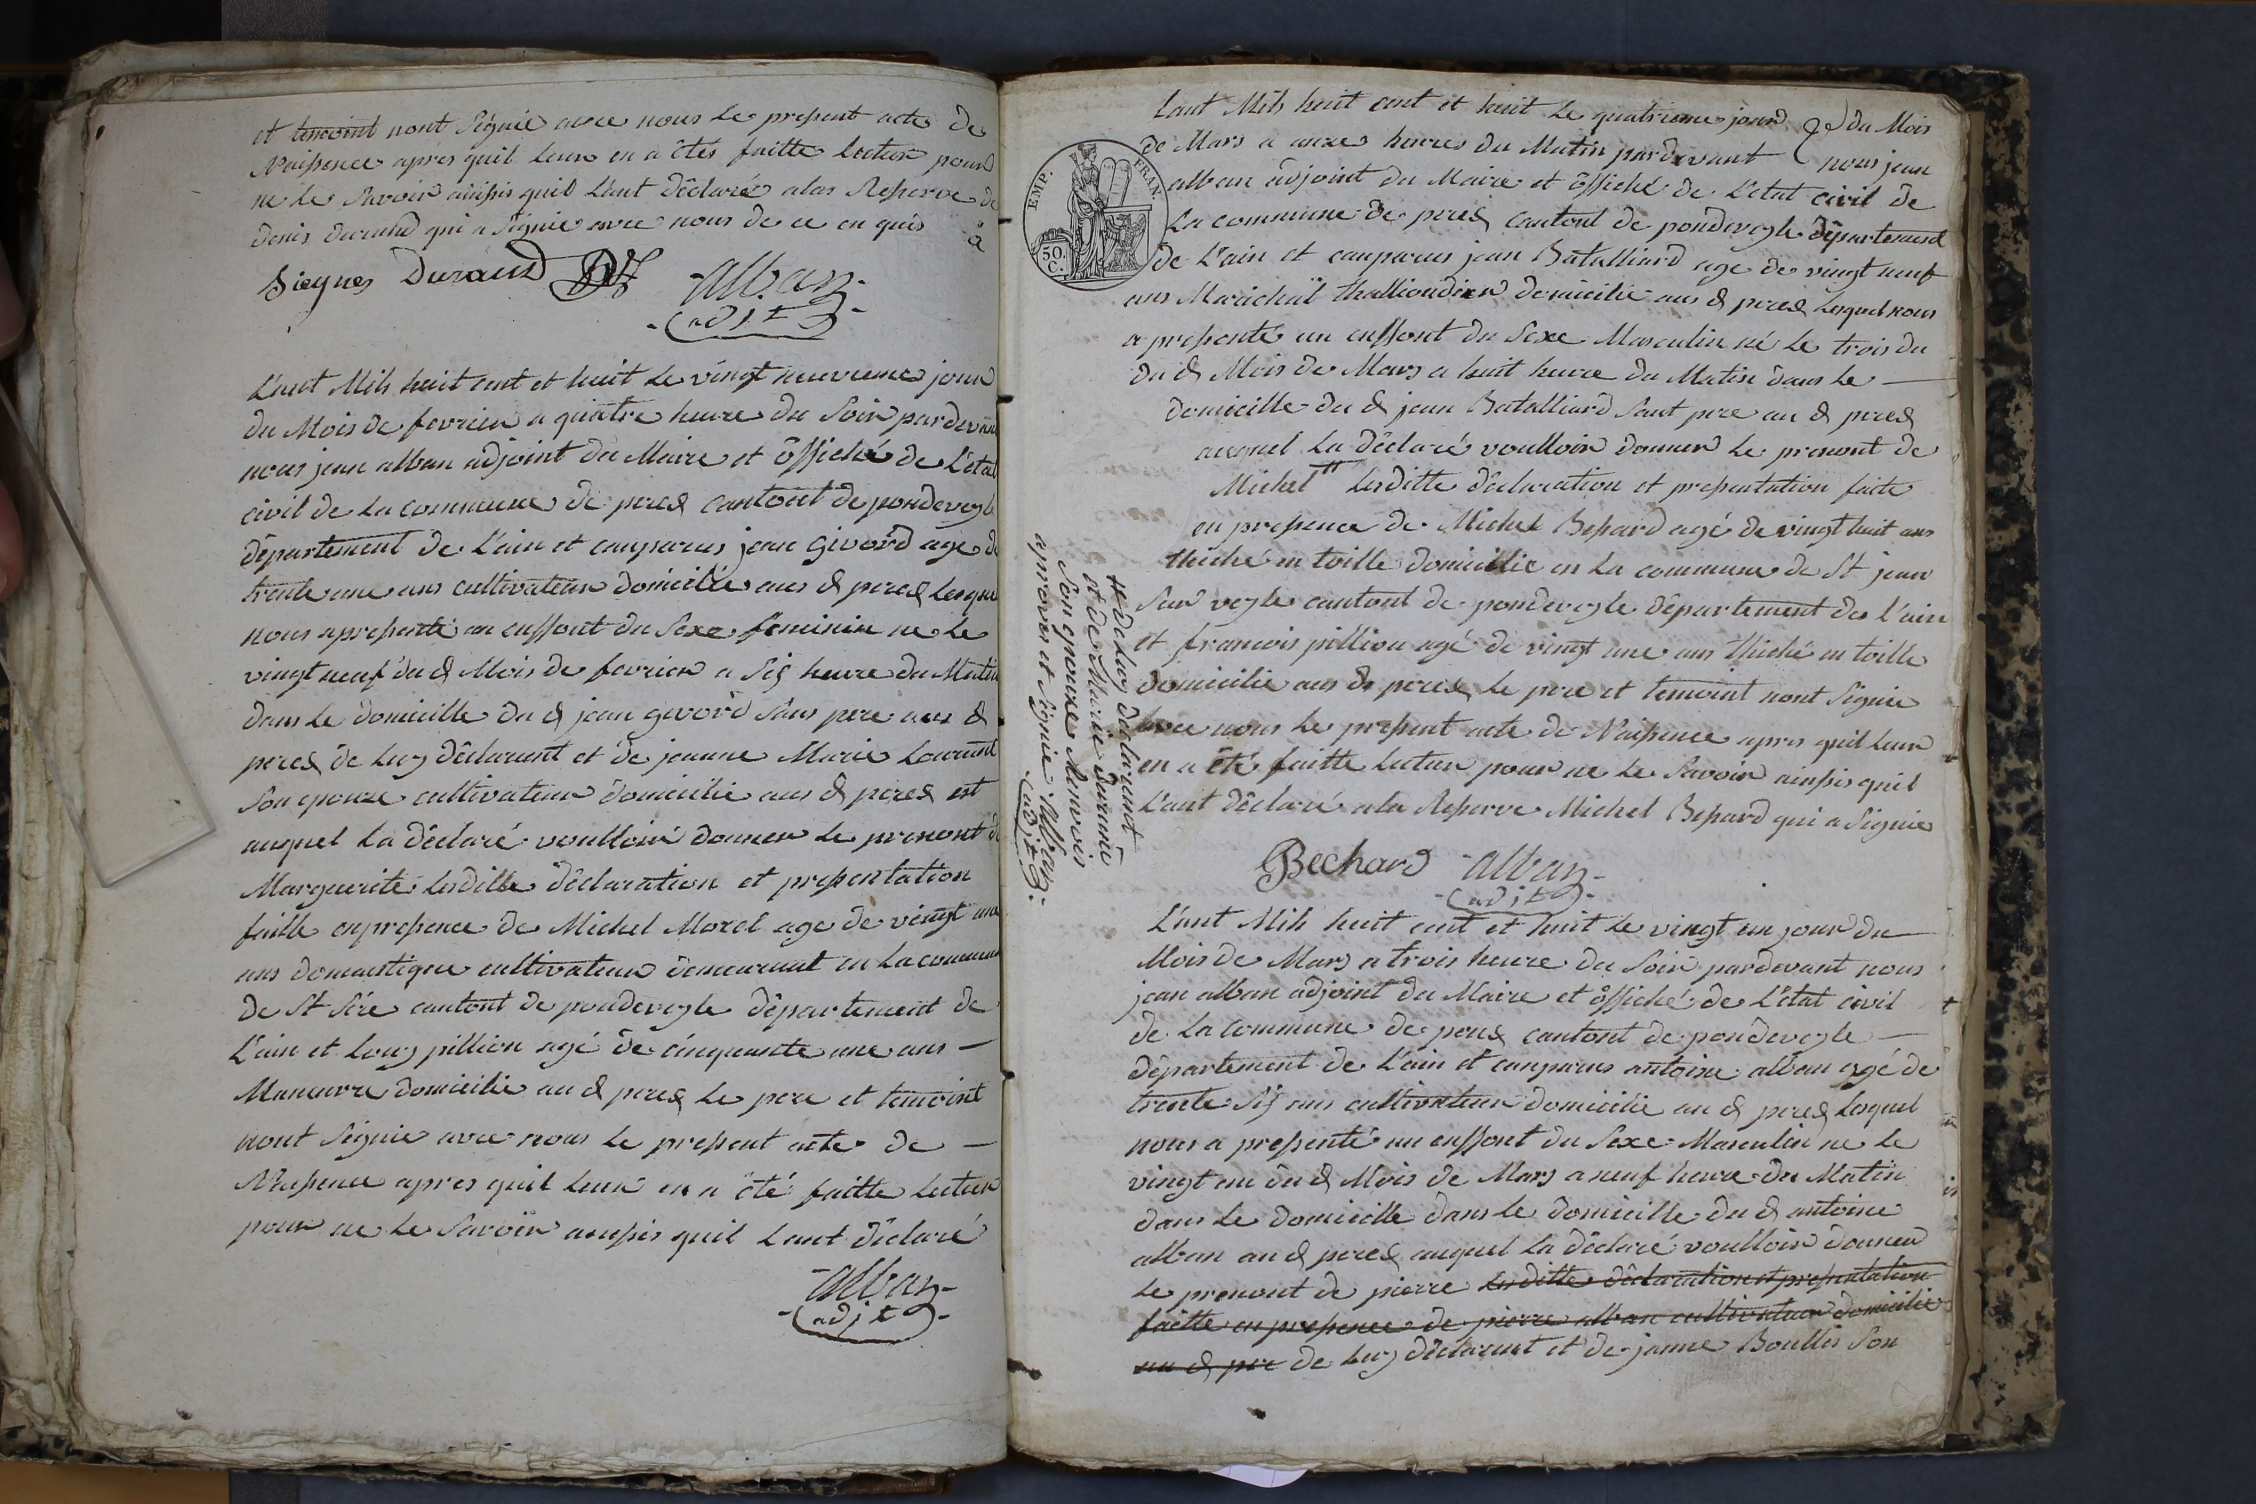 et temoint nont Signie avec nous le present acte de
Naissence apres quil leur en a êtés faitte lecture pour
ne le savoir ainssis quil l'ant déclaré a las Reserve de
denis durand qui a Signie avec nous de ce en quis
Siegnes Durand DD
-alban-
adjt
L'ant Mils huit cent et huit le vingt neuvieme jour
du Mois de fevrier a quatre heure du Soir pardevant
nous jean alban adjoint du Maire et ôffiché de L'état
civil de la commune de perex cantont de pondeveyle
département de L'ain et comparus jean Givord age de
trente une ans cultivateur domicilie aus d perex lesquel
nous apresenté un enffont du Sexe féminin ne le
vingt neuf du d Mois de fevrier a Six heure du Matin
dans le domicille du d jean givord Sans pere aus d
perex de luy déclarant et de jeanne Marie Laurant
Son epouze cultivateur domicilie aus d perex est
auquel la déclaré voulloire donner le prenont de
Marguerite lesditte déclaration et presentation
faitte enpresence de Michel Morel age de vingt une
ans domaestique cultivateur demeurant en la commune
de St Sire cantont de pondeveyle département de
L'ain et Louy pillion agé de cinquante une ans -
Maneuvre domicilie au d perex le pere et temoint
nont Signie avec nous le present acte de -
Naissence apres quil leur en a êté faitte lecture
pour ne le Savoir ainssis quil l'ant déclaré
-alban-
adjt
EMP. FRAN.
50. C.
Lant Mils huit cent et huit le quatrieme jour du Mois
de Mars a onze heures du Matin pardevant nous jean
alban adjoint du Maire et ôffiché de L'état civil de
La commune de perex cantont de pondeveyle département
de L'ain et comparus jean Batalliard age de vingt neuf
ans Marichal thalliondier domicilie aus d perex lesquel nous
a presenté un enffont du Sexe Masculin né le trois du
du d Mois de Mars a huit heure du Matin dans le -
domicille du d jean Batalliard Sant pere au d perex
auquel la déclaré voulloir donner le prenont de
Michel # lesditte déclaration et presentation faite
en presence de Michel Bessard agé de vingt huit ans
thiché en toille domicilie en la commune de St jean
Sur veyle cantont de pondeveyle département de l'ain
et francois pillion agé de vingt une ans thiché en toille
domicilie aus d perex le pere et temoint nont Signie
avec nous le present acte de Naissence apres quil leur
en a êté faitte lecture pour ne le Savoir ainssis quil
L'ant déclaré ala Reserve Michel Bessard qui a Signie
# de luy déclarant
et de Marie durand
Son epouze Renvois
aprouver et Signie alban
adjt
Bechard -alban-
adjt
L'ant Mils huit cent et huit le vingt un jour du -
Mois de Mars a trois heure du Soir pardevant nous
jean alban adjoint du Maire et ôffiché de L'état civil
de la commune de perex cantont de pondeveyle -
département de L'ain et comparus antoine alban agé de
trente Six ans cultivateur domicilie au d perex lesquel
nous a presenté un enffont du Sexe Masculin ne le
vingt un du d Mois de Mars a neuf heure du Matin
dans le domicille dans le domicille du d antoine
alban au d perex auquel la déclaré voulloir donner
le prenont de pierre lesditte déclaration et presentation
faitte en presence de pierre alban cultivateur domicilie
au d per de luy déclarant et de janne Boullis Son